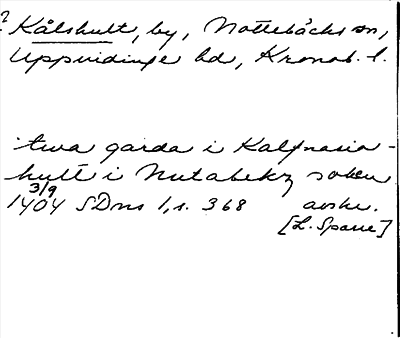 ? Kålshult, by, Nottebäcks sn,
Uppvidinge hd, Kronob. l.
twa garda i Kalfnaia-
hult i Nutabekz soken
3/9
1404 SDns 1, s. 368 avskr.
[L. Sparre]